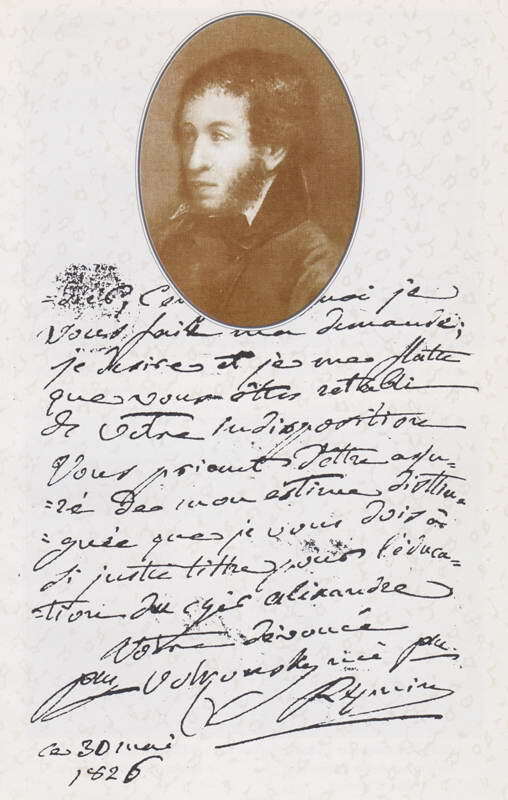 je
Vous fait ma demande;
je desire et je me flatte
que vous êttes retabli
de votre indisposition
Vous priant d'ettre assu-
=ré des mon estime distin-
=guée que je vous dois à
si juste tittre pour l'éduca-
=tion du cher alexandre
Votre dévouée
Volkonsky née
ce 30 mai
1826